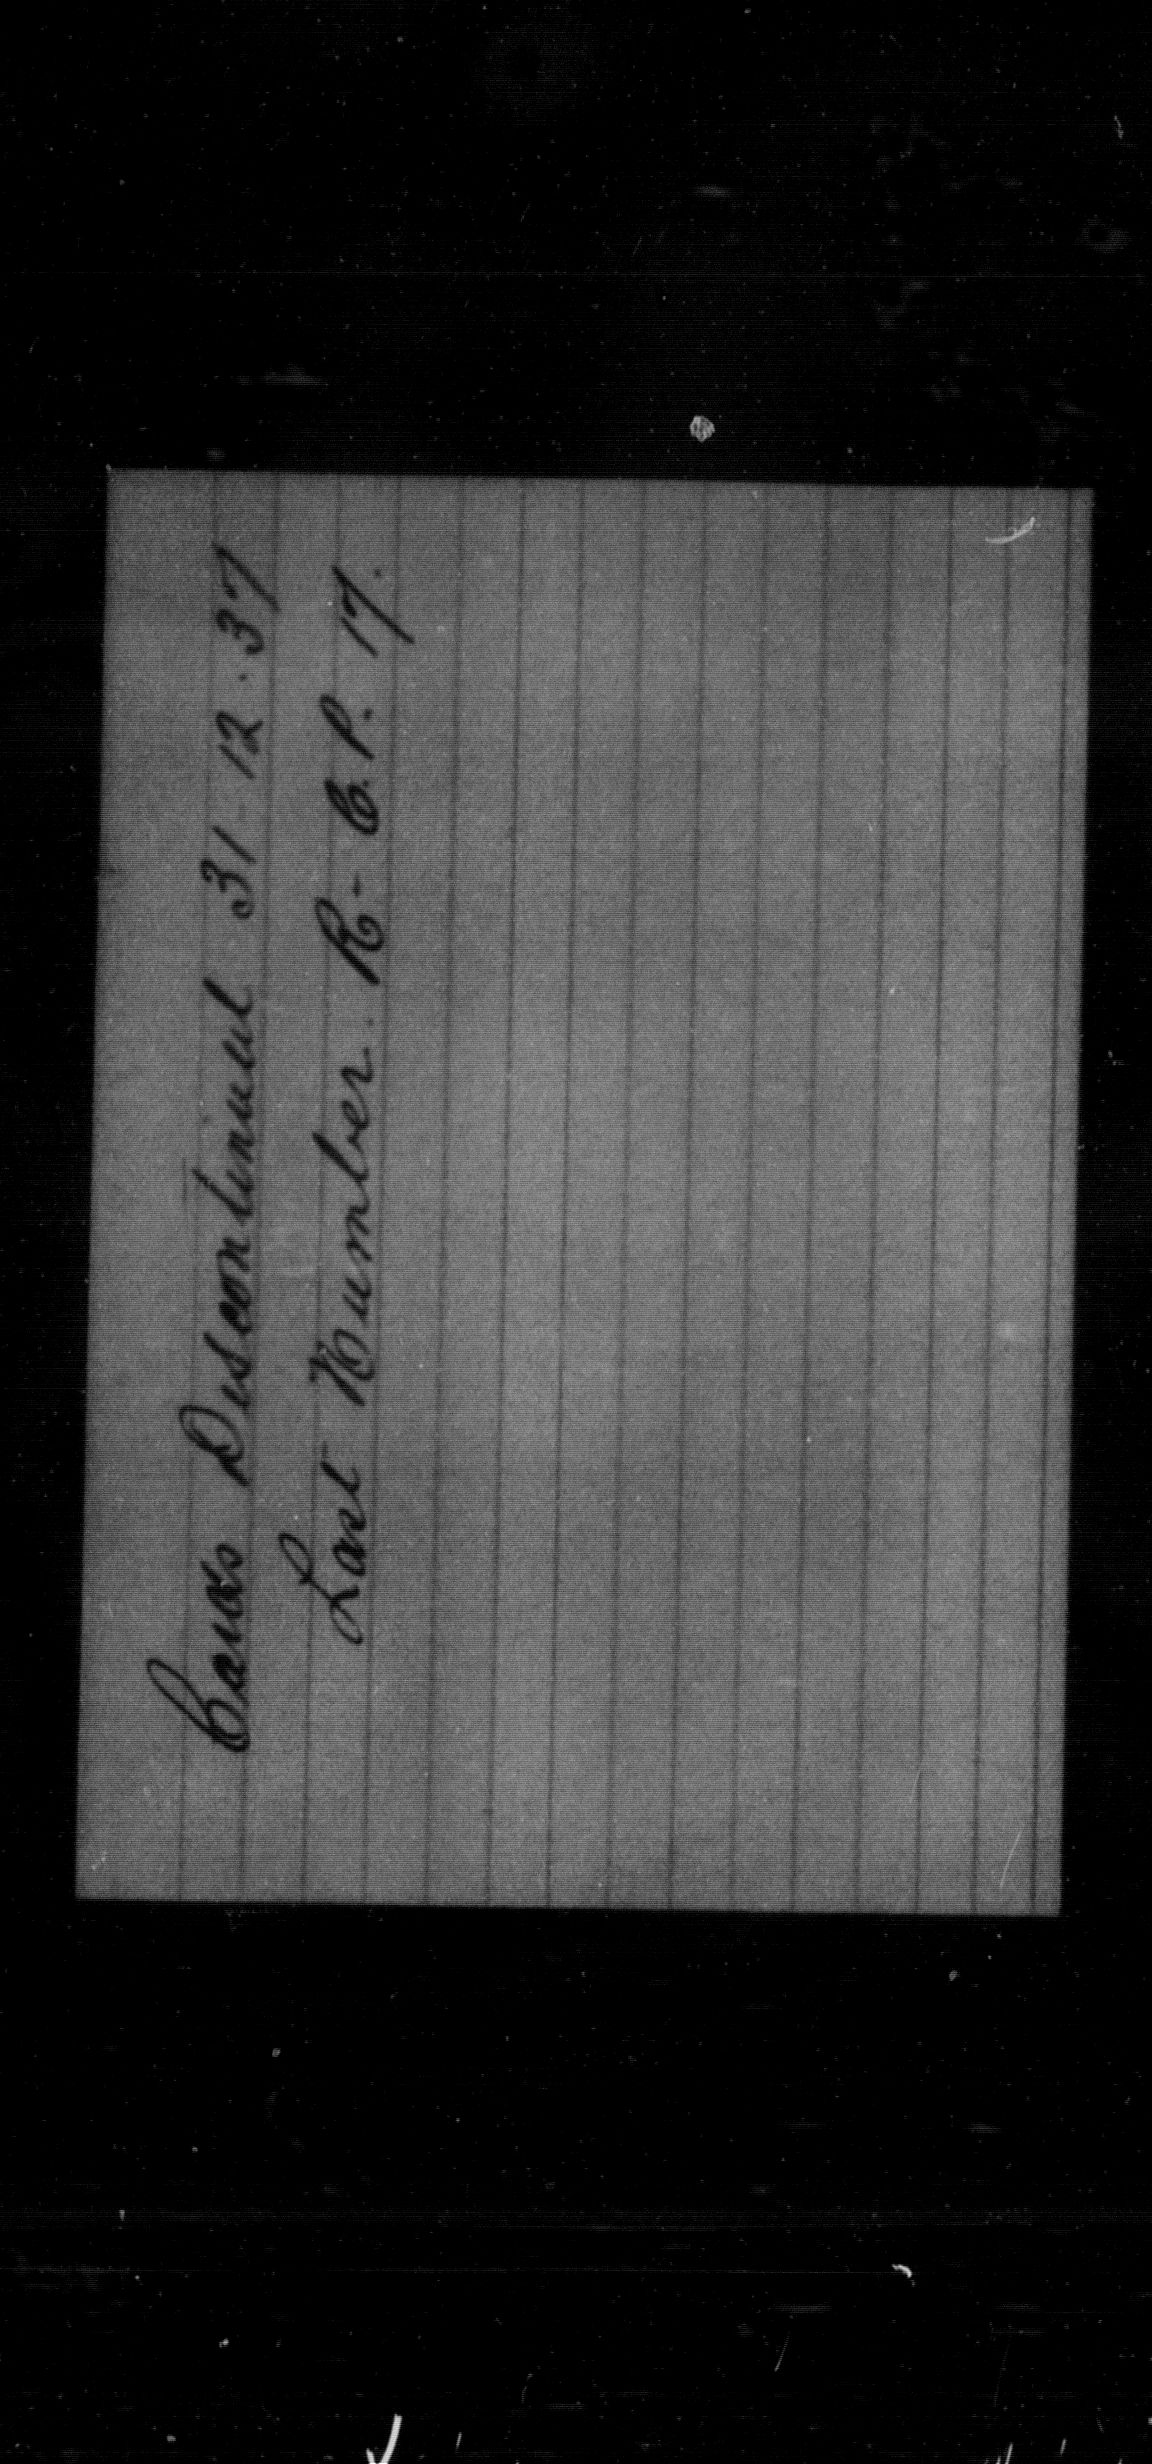 Cards Discontinued 31-12.37
Last Number. R-C.P. 17.